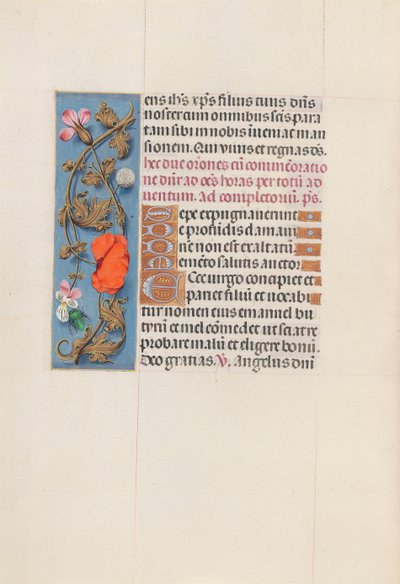 ens ih̅s xp̅s filius tuus dn̅s
noster cum omnibus sc̅is para
tam sibi in nobis inueniat man
sionem. Qui viuis et regnas ds̅.
hec due or̅ones cu̅ com̅emoratio
ne diu̅r ad o̅es horas per totu̅ ad
uentum. Ad completoriu̅. p̅s.
Sepe expugnauerunt
De profundis clamaui
Dn̅e non est exaltatu̅
Memẽto salutis auctor
Ecce virgo concipiet et
pariet filiu̅ et vocabi
tur nomen eius emanuel bu
tyru̅ et mel com̅edet ut sciat re
probare malu̅ et eligere bonu̅.
Deo gratias. V. Angelus dn̅i